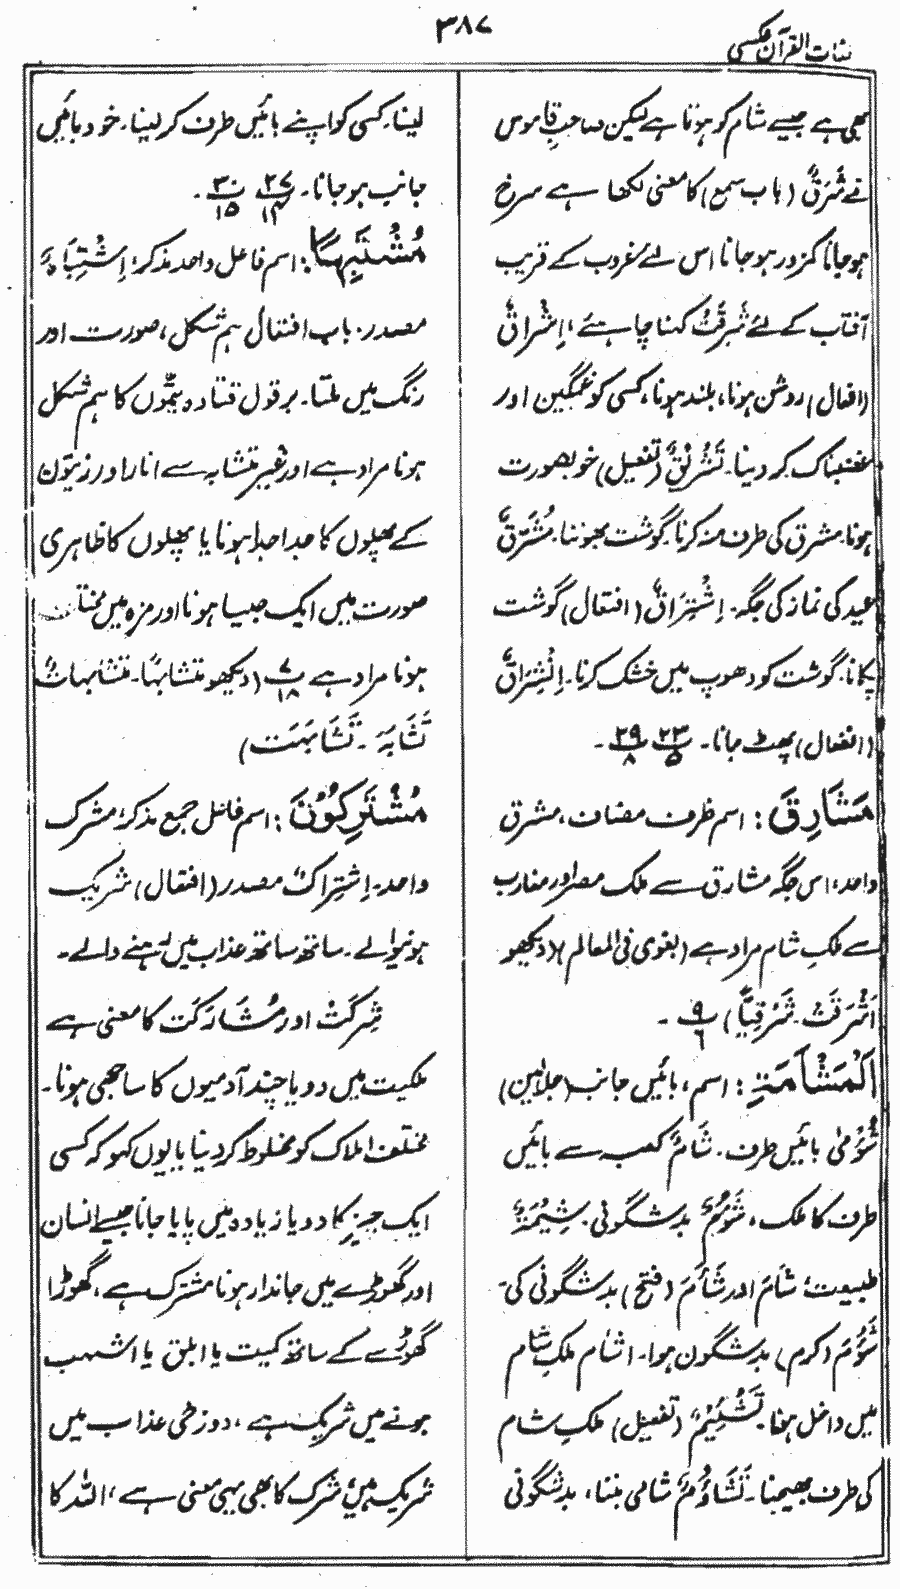 لغات القرآن عکسی
۳۸۷
بھی ہے جیسے شام کو ہوتا ہے لیکن صاحب قاموس
نے شَرِقٌ (باب سمع) کا معنی لکھا ہے سرخ
ہو جانا کمزور ہو جانا اس لئے غروب کے قریب
آفتاب کے لئے شَرِقَتْ کہنا چاہئے، اِشْرَاقٌ
(افعال) روشن ہونا، بلند ہونا، کسی کو غمگین اور
غضبناک کر دینا۔ تَشْرِیْقٌ (تفعیل) خوبصورت
ہونا۔ مشرق کی طرف منہ کرنا گوشت بھوننا۔ مُشَرَّقٌ
عید کی نماز کی جگہ۔ اِشْتِرَاقٌ (افتعال) گوشت
پکانا۔ گوشت کو دھوپ میں خشک کرنا۔ اِنْشِرَاقٌ
(انفعال) پھٹ جانا۔ ۲۳/۵ ۲۹/۸ ۔
مَشَارِقَ : اسم ظرف مضاف، مشرق
واحد، اس جگہ مشارق سے ملک مصر اور مغارب
سے ملکِ شام مراد ہے (بغوی فی المعالم) (دیکھو
اَشْرَقَتْ۔ شَرْقِیًّا) ۹/۶ ۔
اَلْمَشْاَمَۃِ : اسم، بائیں جانب (جلالین)
شُؤْمٰی بائیں طرف۔ شَامٌ کعبہ سے بائیں
طرف کا ملک، شُؤْمٌ بدشگونی۔ شِیْمَۃٌ
طبیعت، شَامَ اور شَأَمَ (فتح) بدشگونی کی۔
شَؤُمَ (کرم) بدشگون ہوا۔ اشام ملکِ شام
میں داخل ہونا۔ تَشْئِیْمٌ (تفعیل) ملکِ شام
کی طرف بھیجنا۔ تَشَاؤُمٌ شامی بننا، بدشگونی
لینا۔ کسی کو اپنے بائیں طرف کر لینا۔ خود بائیں
جانب ہو جانا۔ ۲۷/۱۴ ۳۰/۱۵ ۔
مُشْتَبِہًا : اسم فاعل واحد مذکر؛ اِشْتِبَاہٌ
مصدر۔ باب افتعال ہم شکل، صورت اور
رنگ میں ملتا۔ برقول قتادہ پتوں کا ہم شکل
ہونا مراد ہے اور غیر متشابہ سے انار اور زیتون
کے پھلوں کا جدا جدا ہونا یا پھلوں کا ظاہری
صورت میں ایک جیسا ہونا اور مزہ میں مختلف
ہونا مراد ہے ۷/۱۸ (دیکھو متشابہًا۔ متشابہاتٌ
تَشَابَہَ ۔ تَشَابَہَت)
مُشْتَرِکُوْنَ : اسم فاعل جمع مذکر؛ مشرک
واحد۔ اِشْتِراکٌ مصدر (افتعال) شریک
ہونیوالے۔ ساتھ ساتھ عذاب میں رہنے والے۔
شِرکَتْ اور مُشَارَکَت کا معنی ہے
ملکیت میں دو یا چند آدمیوں کا ساجھی ہونا۔
مختلف املاک کو مخلوط کر دینا یا یوں کہو کہ کسی
ایک چیز کا دو یا زیادہ میں پایا جانا جیسے انسان
اور گھوڑے میں جاندار ہونا مشترک ہے، گھوڑا
گھوڑے کے ساتھ کمیت یا ابلق یا اشہب
ہونے میں شریک ہے، دوزخی عذاب میں
شریک ہیں، شرک کا بھی یہی معنی ہے، اللہ کا